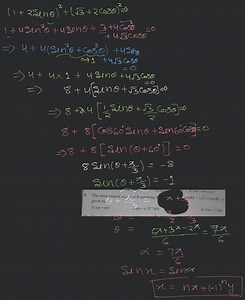 (1+2Sinθ)²+(√3+2Cosθ)²=0
1+4Sin²θ+4Sinθ+3+4Cos²θ
+4√3Cosθ=0
=> 4+4(Sin²θ+Cos²θ)+4Sinθ
+4√3Cosθ=0
=> 4+4×1+4Sinθ+4√3Cosθ=0
=> 8+4(Sinθ+√3Cosθ)=0
=> 8+2×4[1/2 Sinθ+√3/2 Cosθ]=0
8+8[Cos60°Sinθ+Sin60°Cosθ]=0
=> 8+8[Sin(θ+60°)]=0
8Sin(θ+π/3)=-8
Sin(θ+π/3)=-1
θ = 6π+3π-2π/6 = 7π/6
α = 7π/6
Sinx = Sinα
x = nπ+(-1)ⁿy